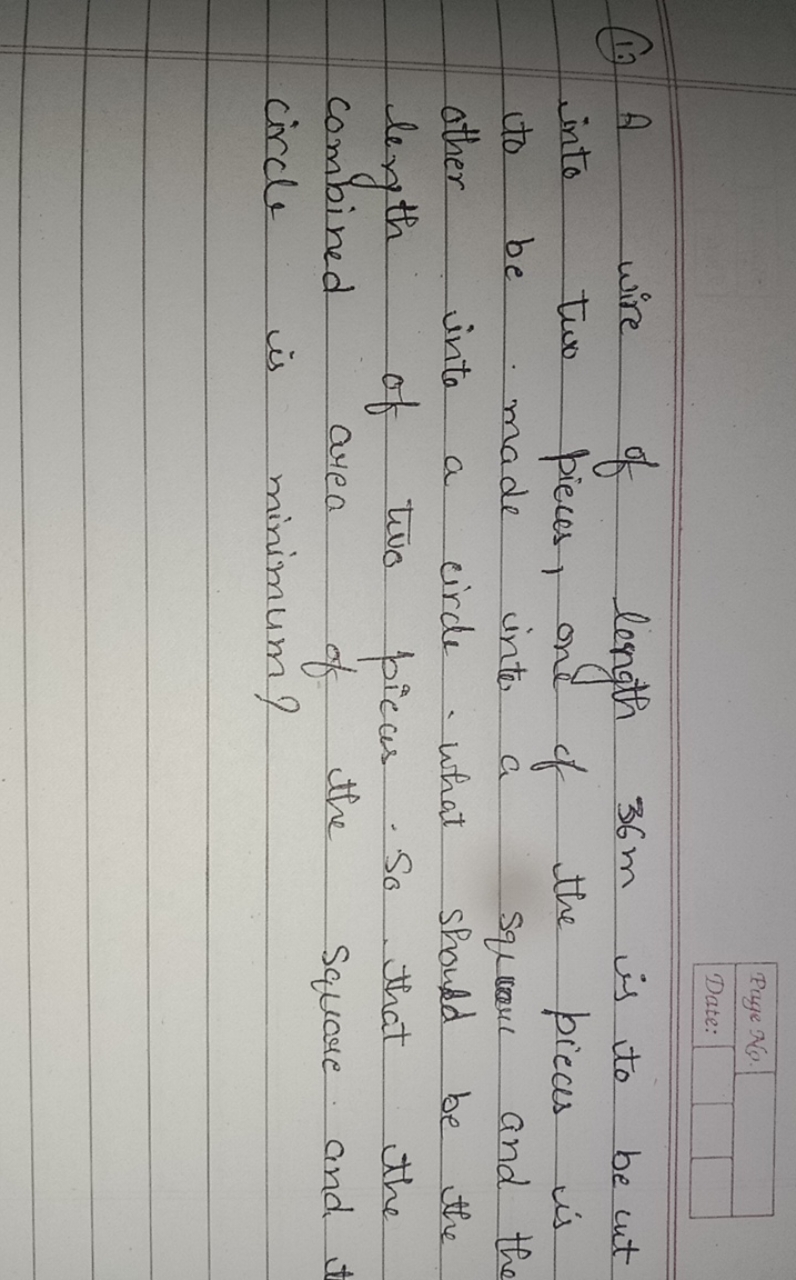 Page No.
Date:
1. A wire of length 36m is to be cut
into two pieces, one of the pieces is
to be made into a square and the
other into a circle. what should be the
length of two pieces. So that the
combined area of the square and
circle is minimum?